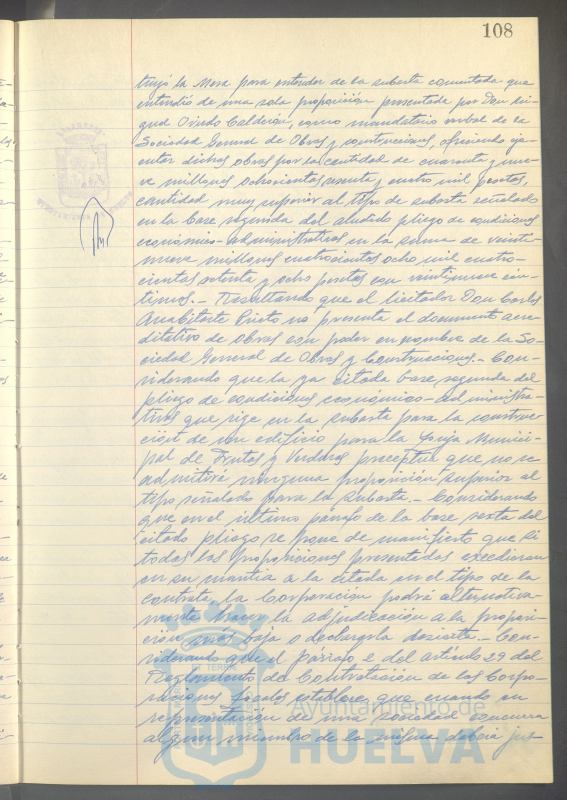 108
tuyó la Mesa para entender de la subasta comentada que
entendió de una sola proposición presentada por Don
Oviedo Calderón, como mandatario verbal de la
Sociedad General de Obras y Construcciones, ofreciendo eje-
cutar dichas obras por la cantidad de cuarenta y nue-
ve millones ochocientas sesenta y cuatro mil pesetas,
cantidad muy superior al tipo de subasta señalado
en la base segunda del aludido pliego de condiciones
económico-administrativas en la suma de veinti-
nueve millones cuatrocientas ocho mil cuatro-
cientas setenta y ocho pesetas con veintinueve cén-
timos.- Resultando que el licitador Don Carlos
Anabitarte Prieto no presenta el documento acre-
ditativo de obrar con poder en nombre de la So-
ciedad General de Obras y Construcciones.- Con-
siderando que la ya citada base segunda del
pliego de condiciones económico-administra-
tivas que rige en la subasta para la construc-
ción de un edificio para la Lonja Munici-
pal de Frutas y Verduras preceptua que no se
admitirá ninguna proposición superior al
tipo señalado para la subasta.- Considerando
que en el último párrafo de la base sexta del
citado pliego se pone de manifiesto que si
todas las proposiciones presentadas excedieran
en su cuantía a la citada en el tipo de la
contrata, la Corporación podrá alternativa-
mente hacer la adjudicación a la proposi-
ción más baja o declararla desierta.- Con-
siderando que el párrafo 2 del artículo 29 del
Reglamento de Contratación de las Corpo-
raciones Locales establece que cuando en
representación de una sociedad concurra
algún miembro de la misma deberá jus-
Ayuntamiento de
HUELVA